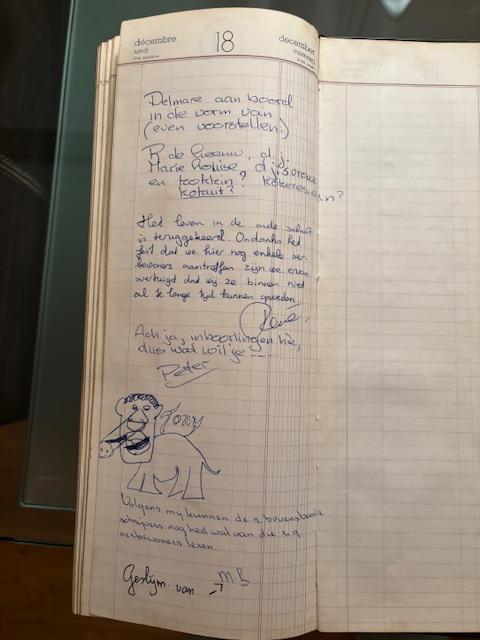 décembre 18 december
lundi
Delmare aan boord
in de vorm van
(even voorstellen:)
R. de Leeuw, al j.
Marie Louise d
en ? 
kokuit?
Het leven in de oude schuit
is teruggekeerd. Ondanks het
feit dat we hier nog enkele oer-
bewoners aantroffen zijn we ervan
overtuigd dat wij ze binnen niet
al te lange tijd kunnen opvoeden
René.
Ach ja, inboorlingen hè,
dus wat wil je ---
Peter
Tony
Volgens mij kunnen de 2 bovenstaande
schrijvers nog heel wat van die zg
oerbewoners leren.
van M.B